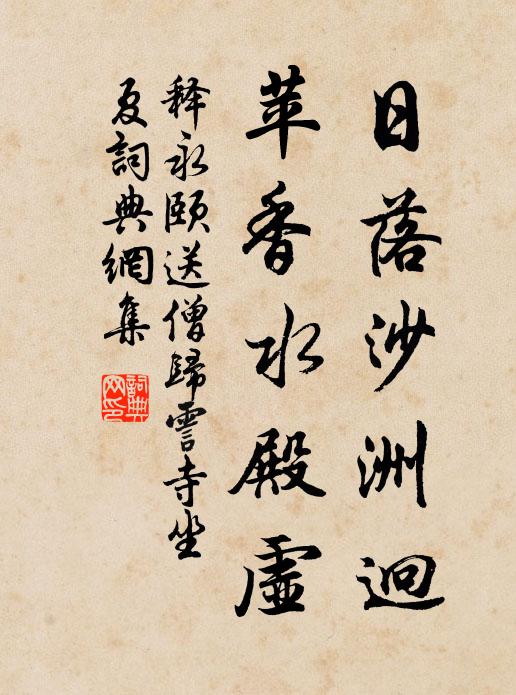 日落沙洲迥
苹香水殿虛
释永頤送僧歸雲寺坐
夏詞典網集
詞典网印